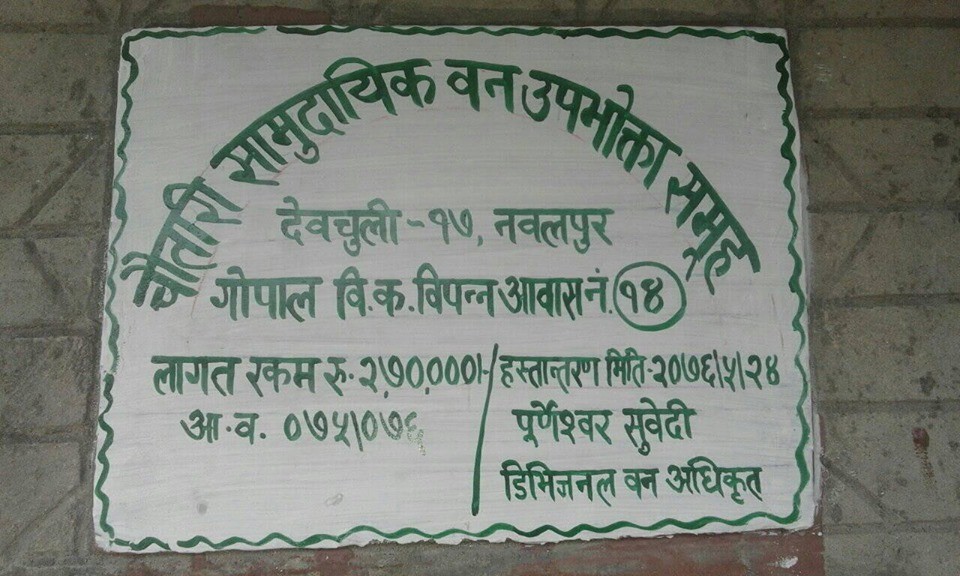 चौतारी सामुदायिक वन उपभोक्ता समूह
देवचुली - १७, नवलपुर
गोपाल वि.क. विपन्न आवास नं. १४
लागत रकम रु. २,७०,०००।-
आ.व. ०७५।०७६
हस्तान्तरण मिति-२०७६।५।२४
पूर्णेश्वर सुवेदी
डिभिजनल वन अधिकृत